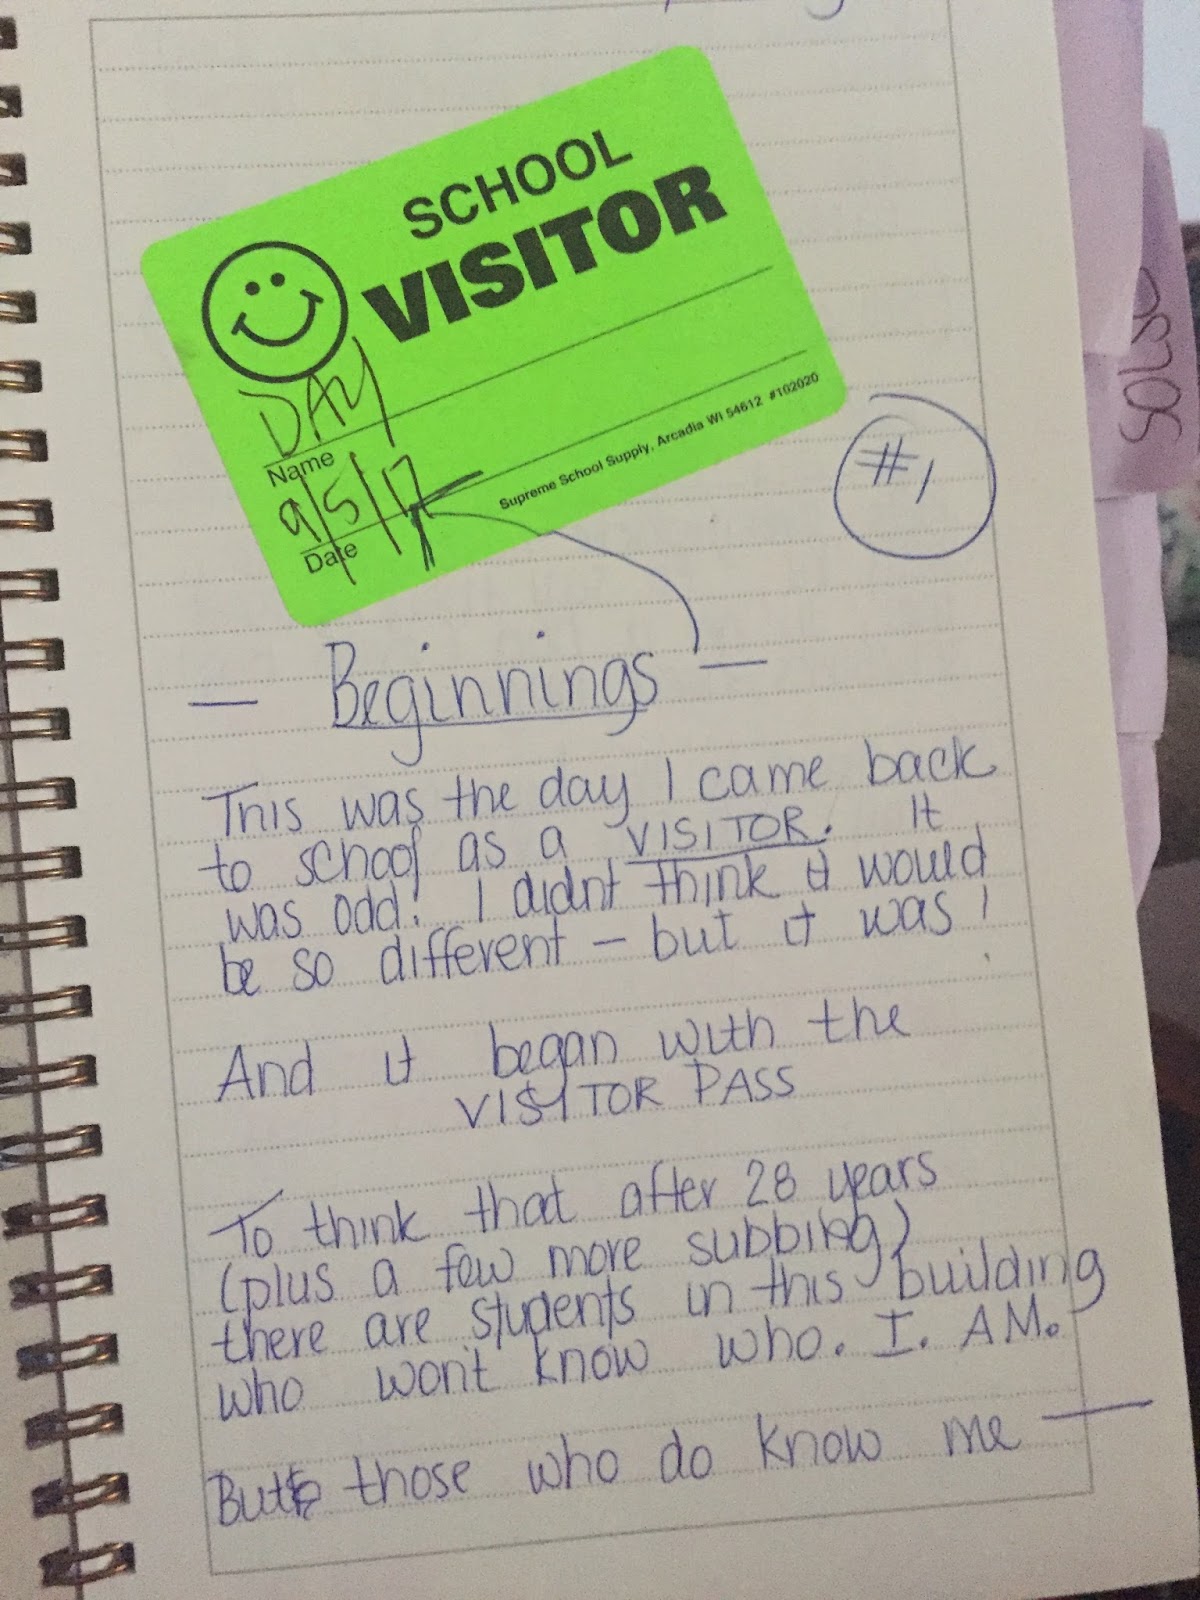 SCHOOL
VISITOR
DAY
Name
9/5/17
Date
Supreme School Supply, Arcadia WI 54612 #102020
#1
— Beginnings —
This was the day I came back
to school as a VISITOR. It
was odd! I didn't think it would
be so different — but it was!
And it began with the
VISITOR PASS
To think that after 28 years
(plus a few more subbing)
there are students in this building
who won't know who. I. AM.
But those who do know me —